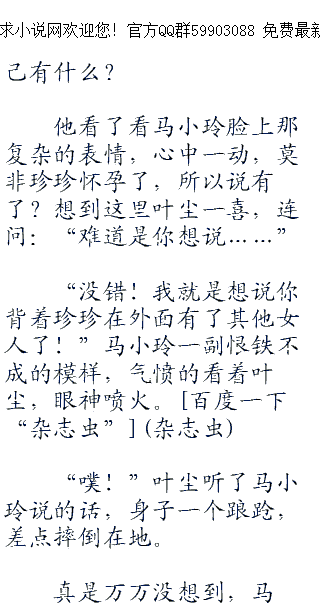 求小说网欢迎您！官方QQ群59903088 免费最新
己有什么？
他看了看马小玲脸上那
复杂的表情，心中一动，莫
非珍珍怀孕了，所以说有
了？想到这里叶尘一喜，连
问：“难道是你想说……”
“没错！我就是想说你
背着珍珍在外面有了其他女
人了！”马小玲一副恨铁不
成的模样，气愤的看着叶
尘，眼神喷火。[百度一下
“杂志虫”](杂志虫)
“噗！”叶尘听了马小
玲说的话，身子一个踉跄，
差点摔倒在地。
真是万万没想到，马